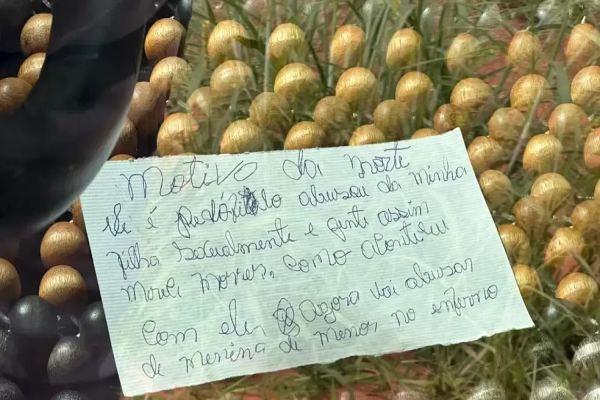 Motivo da morte
ele é pedófilo abusou da minha
filha sexualmente e gente assim
morre como aconteceu
com ele, Agora vai abusar
de menina de menor, no enferno